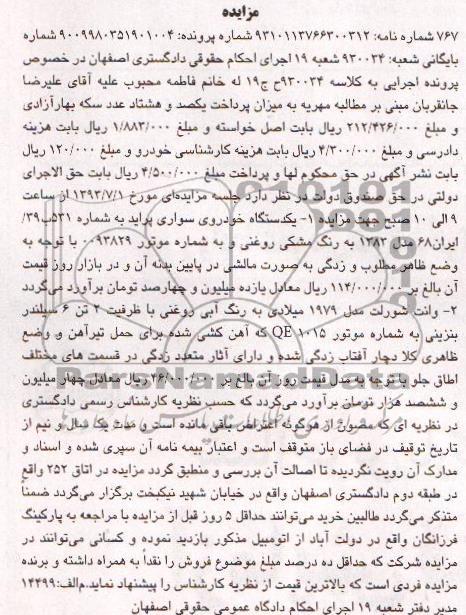 مزایده
۷۶۷ شماره نامه: ۹۳۱۰۱۱۳۷۶۶۳۰۰۳۱۲ شماره پرونده: ۹۰۰۹۹۸۰۳۵۱۹۰۱۰۰۴ شماره
بایگانی شعبه: ۹۳۰۰۳۴ شعبه ۱۹ اجرای احکام حقوقی دادگستری اصفهان در خصوص
پرونده اجرایی به کلاسه ۹۳۰۰۳۴ح ج۱۹ له خانم فاطمه محبوب علیه آقای علیرضا
جانقربان مبنی بر مطالبه مهریه به میزان پرداخت یکصد و هشتاد عدد سکه بهارآزادی
و مبلغ ۲۱۲/۴۲۶/۰۰۰ ریال بابت اصل خواسته و مبلغ ۱/۸۸۳/۰۰۰ ریال بابت هزینه
دادرسی و مبلغ ۴/۳۰۰/۰۰۰ ریال بابت هزینه کارشناسی خودرو و مبلغ ۱۲۰/۰۰۰ ریال
بابت نشر آگهی در حق محکوم لها و پرداخت مبلغ ۴/۵۰۰/۰۰۰ ریال بابت حق الاجرای
دولتی در حق صندوق دولت در نظر دارد جلسه مزایده‌ای مورخ ۱۳۹۳/۷/۱ از ساعت
۹ الی ۱۰ صبح جهت مزایده ۱- یکدستگاه خودروی سواری پراید به شماره ۵۳۱ب۳۹/
ایران۶۸ مدل ۱۳۸۳ به رنگ مشکی روغنی و به شماره موتور ۰۰۹۳۸۲۹ با توجه به
وضع ظاهر مطلوب و زدگی به صورت مالشی در پایین بدنه آن و در بازار روز قیمت
آن بالغ بر ۱۱۴/۰۰۰/۰۰۰ ریال معادل یازده میلیون و چهارصد تومان برآورد می‌گردد
۲- وانت شورلت مدل ۱۹۷۹ میلادی به رنگ آبی روغنی با ظرفیت ۲ تن ۶ سیلندر
بنزینی به شماره موتور QE ۱۰۱۵ که آهن کشی شده برای حمل تیرآهن و وضع
ظاهری کلا دچار آفتاب زدگی شده و دارای آثار متعدد زدگی در قسمت های مختلف
اطاق جلو با توجه به مدل قیمت روز آن بالغ بر ۴۶/۰۰۰/۰۰۰ ریال معادل چهار میلیون
و ششصد هزار تومان برآورد می‌گردد که حسب نظریه کارشناس رسمی دادگستری
در نظریه ای که مصون از هرگونه اعتراض باقی مانده است و مدت یک سال و نیم از
تاریخ توقیف در فضای باز متوقف است و اعتبار بیمه نامه آن سپری شده و اسناد و
مدارک آن رویت نگردیده تا اصالت آن بررسی و منطبق گردد مزایده در اتاق ۲۵۲ واقع
در طبقه دوم دادگستری اصفهان واقع در خیابان شهید نیکبخت برگزار می‌گردد ضمناً
متذکر می‌گردد طالبین خرید می‌توانند حداقل ۵ روز قبل از مزایده با مراجعه به پارکینگ
فرزانگان واقع در دولت آباد از اتومبیل مذکور بازدید نموده و کسانی می‌توانند در
مزایده شرکت که حداقل ده درصد مبلغ موضوع فروش را نقداً به همراه داشته و برنده
مزایده فردی است که بالاترین قیمت از نظریه کارشناس را پیشنهاد نماید.م‌الف:۱۴۴۹۹
مدیر دفتر شعبه ۱۹ اجرای احکام دادگاه عمومی حقوقی اصفهان
ParsNamadData